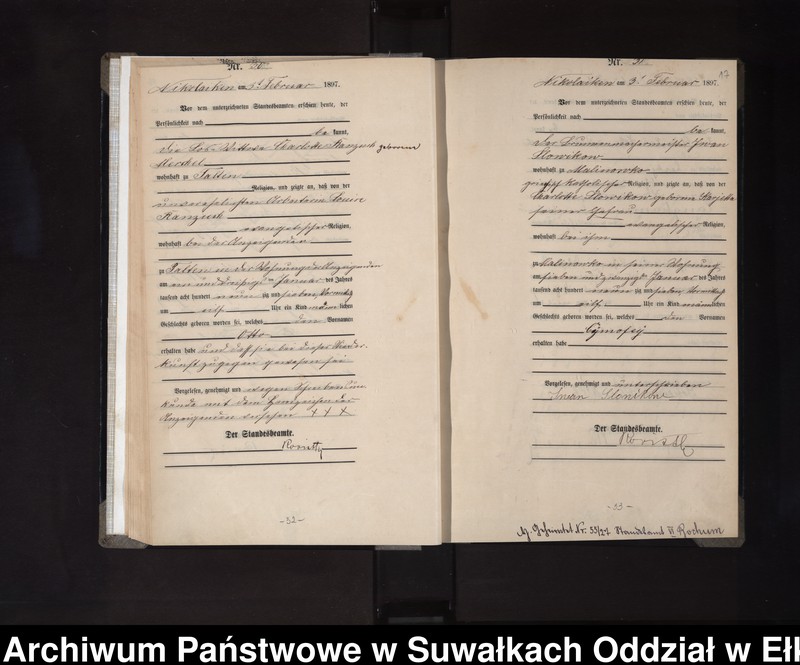 Nr. 30
Nikolaiken am 3t Februar 1897.
Vor dem unterzeichneten Standesbeamten erschien heute, der
Persönlichkeit nach
be kannt,
die Losb. Wittwe Charlotte geborene
Merchel
wohnhaft zu Talten
Religion, und zeigte an, daß von der
unverehelichten Arbeiterin Louise
evangelischer Religion,
wohnhaft bei der Anzeigenden
zu Talten in der Wohnung der Anzeigenden
am ein und dreißigsten Januar des Jahres
tausend acht hundert neunzig und sieben Vormittags
um Uhr ein Kind männlichen
Geschlechts geboren worden sei, welches den Vornamen
Otto
erhalten habe und daß sie bei dieser Nieder-
kunft zugegen gewesen sei
Vorgelesen, genehmigt und wegen Schreibensun-
kunde mit dem Handzeichen der
Anzeigenden versehen + + +
Der Standesbeamte.
-52-
Nr. 31
Nikolaiken am 3t Februar 1897.
Vor dem unterzeichneten Standesbeamten erschien heute, der
Persönlichkeit nach
be kannt,
der Brunnenmachermeister Iwan
Slowikow
wohnhaft zu Malinowko
katholischer Religion, und zeigte an, daß von der
Charlotte Slowikow geborene
seiner Ehefrau
evangelischer Religion,
wohnhaft bei ihm
zu Malinowko in seiner Wohnung
am sieben und zwanzigsten Januar des Jahres
tausend acht hundert neunzig und sieben Vormittags
um Uhr ein Kind männlichen
Geschlechts geboren worden sei, welches den Vornamen
Tymofey
erhalten habe
Vorgelesen, genehmigt und unterschrieben
Iwan Slowikow
Der Standesbeamte.
-53-
Nr. 53/27 Standesamt II Bochum
Archiwum Państwowe w Suwałkach Oddział w Ełk